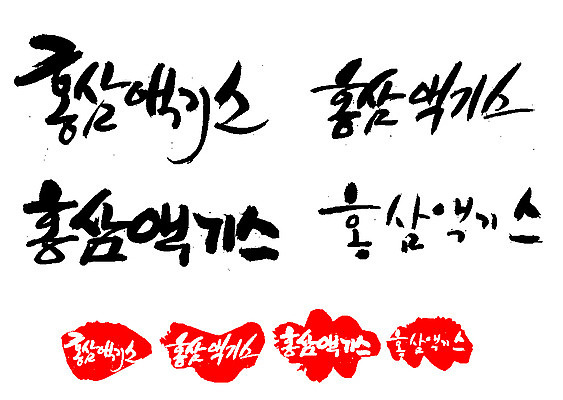 홍삼액기스 홍삼액기스
홍삼액기스 홍삼액기스
홍삼액기스 홍삼액기스 홍삼액기스 홍삼액기스